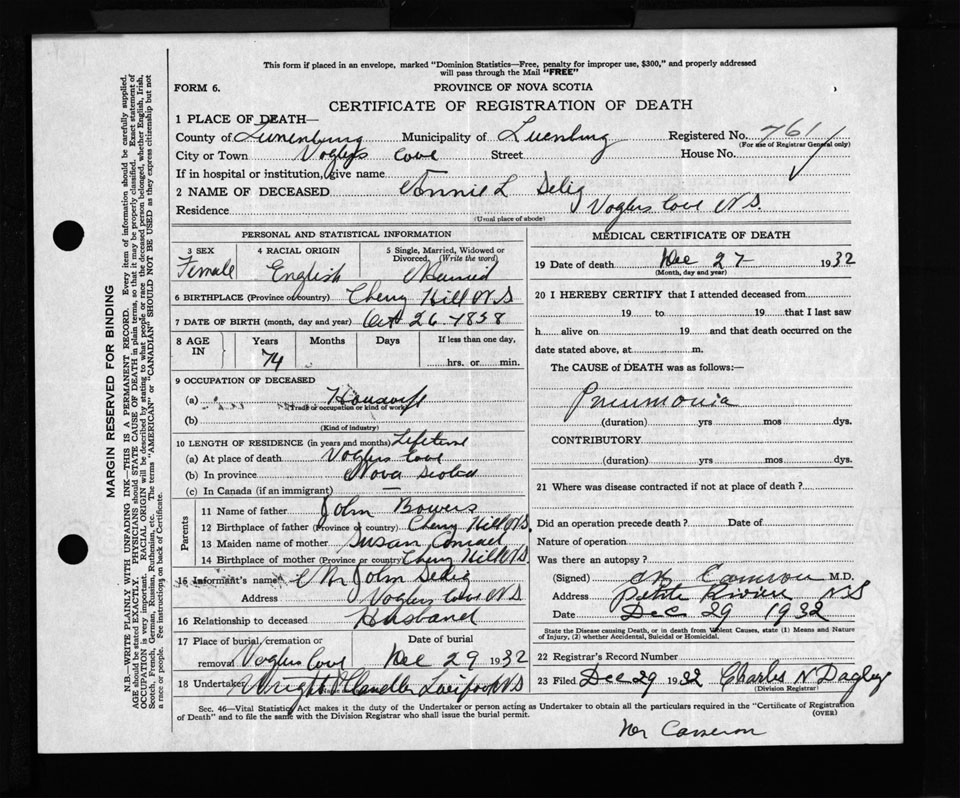 This form if placed in an envelope, marked "Dominion Statistics—Free, penalty for improper use, $300," and properly addressed
will pass through the Mail "FREE"
FORM 6.
PROVINCE OF NOVA SCOTIA
CERTIFICATE OF REGISTRATION OF DEATH
1 PLACE OF DEATH—
County of Lunenburg Municipality of Luenburg Registered No. 761
(For use of Registrar General only)
City or Town Voglers Cove Street House No.
If in hospital or institution, give name
2 NAME OF DECEASED Annie L Selig
Residence Voglers Cove N.S.
(Usual place of abode)
PERSONAL AND STATISTICAL INFORMATION
3 SEX 4 RACIAL ORIGIN 5 Single, Married, Widowed or
Divorced, (Write the word)
Female English Married
6 BIRTHPLACE (Province or country) Cherry Hill N.S
7 DATE OF BIRTH (month, day and year) Oct 26-1858
8 AGE IN Years Months Days If less than one day,
74 hrs. or min.
9 OCCUPATION OF DECEASED
(a) Housewife
Trade or occupation or kind of work
(b)
(Kind of industry)
10 LENGTH OF RESIDENCE (in years and months) Lifetime
(a) At place of death Voglers Cove
(b) In province Nova Scotia
(c) In Canada (if an immigrant) —
Parents
11 Name of father John Bowers
12 Birthplace of father (Province or country) Cherry Hill N.S.
13 Maiden name of mother Susan Conrad
14 Birthplace of mother (Province or country) Cherry Hill N.S.
15 Informant's name Mr John Selig
Address Voglers Cove N.S
16 Relationship to deceased Husband
17 Place of burial, cremation or Date of burial
removal Voglers Cove Dec 29 1932
18 Undertaker Wright Chandler Liverpool N.S
MEDICAL CERTIFICATE OF DEATH
19 Date of death Dec 27 1932
(Month, day and year)
20 I HEREBY CERTIFY that I attended deceased from
19 to 19 that I last saw
h alive on 19 and that death occurred on the
date stated above, at m.
The CAUSE of DEATH was as follows:—
Pneumonia
(duration) yrs mos dys.
CONTRIBUTORY
(duration) yrs mos dys.
21 Where was disease contracted if not at place of death?
Did an operation precede death? Date of
Nature of operation
Was there an autopsy?
(Signed) Cameron M.D.
Address Petite Riviere N.S
Date Dec 29 1932
State the Disease causing Death, or in death from Violent Causes, state (1) Means and Nature
of Injury, (2) whether Accidental, Suicidal or Homicidal.
22 Registrar's Record Number
23 Filed Dec 29 1932 Charles N Dagley
(Division Registrar)
Sec. 46—Vital Statistics Act makes it the duty of the Undertaker or person acting as Undertaker to obtain all the particulars required in the "Certificate of Registration
of Death" and to file the same with the Division Registrar who shall issue the burial permit. (OVER)
Cameron
MARGIN RESERVED FOR BINDING
N.B.—WRITE PLAINLY WITH UNFADING INK—THIS IS A PERMANENT RECORD. Every item of information should be carefully supplied.
AGE should be stated EXACTLY. PHYSICIANS should STATE CAUSE OF DEATH in plain terms, so that it may be properly classified. Exact statement of
OCCUPATION is very important. RACIAL ORIGIN will be described by stating to what people or race the deceased person belonged, whether English, Irish,
Scotch, French, German, Russian, Ruthenian, etc. The terms "AMERICAN" or "CANADIAN" SHOULD NOT BE USED as they express citizenship but not
a race or people. See instructions on back of Certificate.